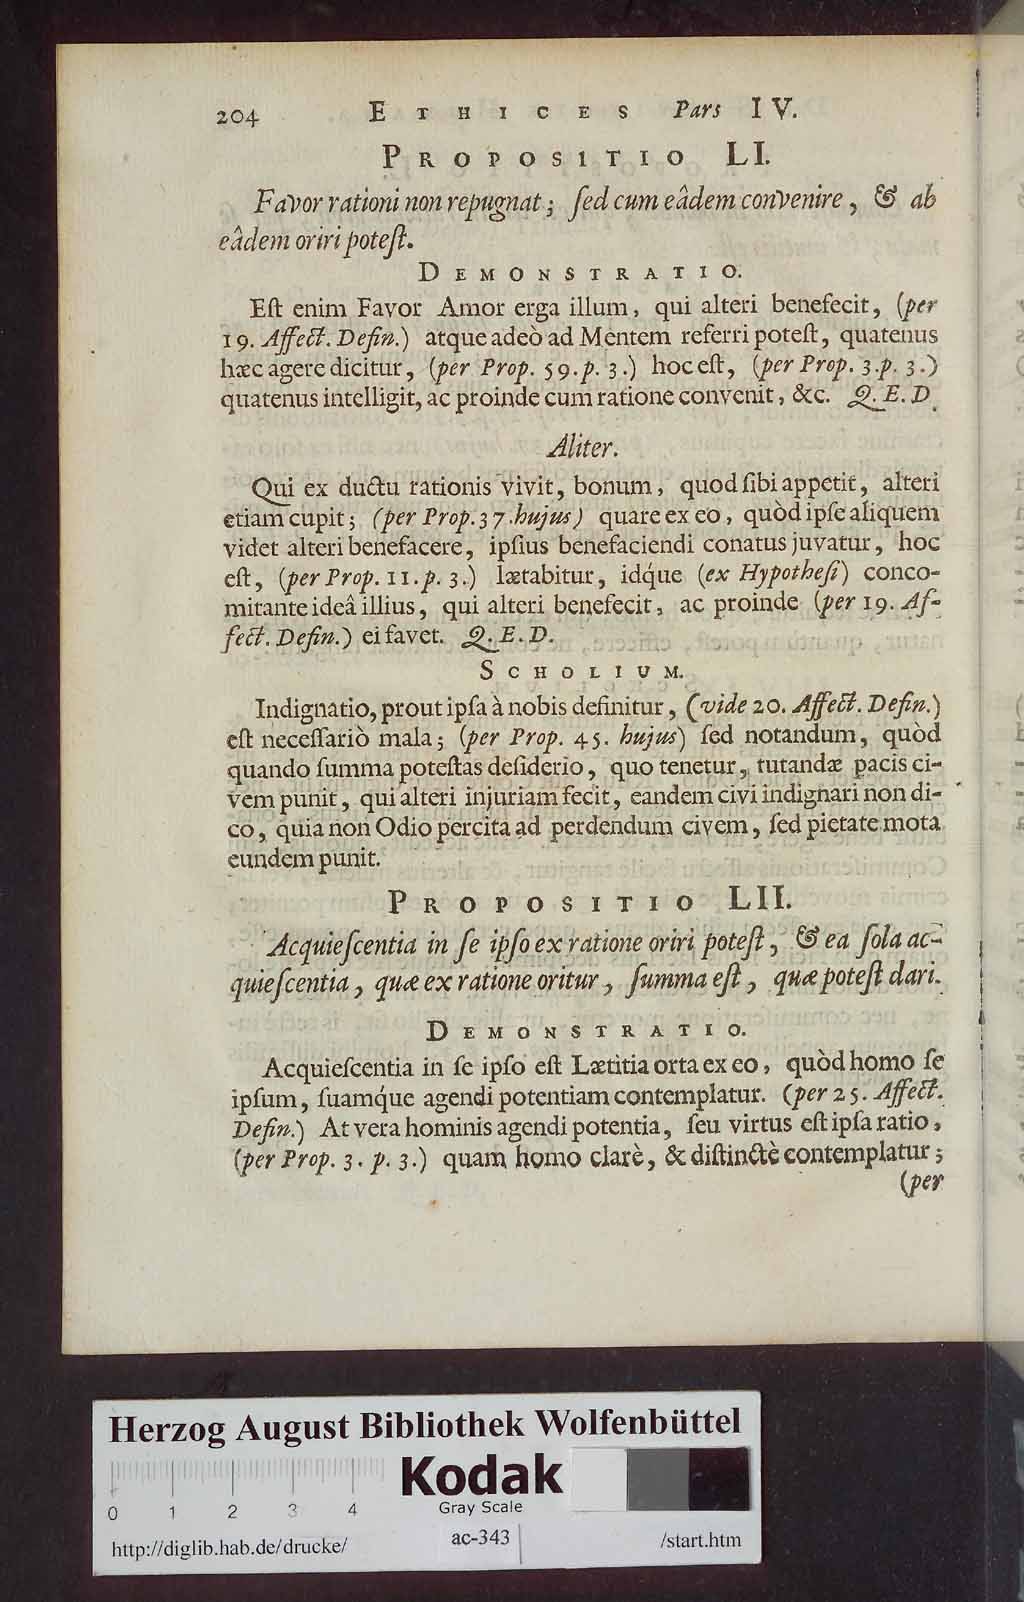 204 ETHICES Pars IV.
PROPOSITIO LI.
Favor rationi non repugnat; ſed cum eâdem convenire, & ab
eâdem oriri poteſt.
DEMONSTRATIO.
Eſt enim Favor Amor erga illum, qui alteri benefecit, (per
19. Affect. Defin.) atque adeò ad Mentem referri poteſt, quatenus
hæc agere dicitur, (per Prop. 59. p. 3.) hoc eſt, (per Prop. 3. p. 3.)
quatenus intelligit, ac proinde cum ratione convenit, &c. Q. E. D.
Aliter.
Qui ex ductu rationis vivit, bonum, quod ſibi appetit, alteri
etiam cupit; (per Prop. 37. hujus) quare ex eo, quòd ipſe aliquem
videt alteri benefacere, ipſius benefaciendi conatus juvatur, hoc
eſt, (per Prop. 11. p. 3.) lætabitur, idq́ue (ex Hypotheſi) conco-
mitante ideâ illius, qui alteri benefecit, ac proinde (per 19. Af-
fect. Defin.) ei favet. Q. E. D.
SCHOLIUM.
Indignatio, prout ipſa à nobis definitur, (vide 20. Affect. Defin.)
eſt neceſſariò mala; (per Prop. 45. hujus) ſed notandum, quòd
quando ſumma poteſtas deſiderio, quo tenetur, tutandæ pacis ci-
vem punit, qui alteri injuriam fecit, eandem civi indignari non di-
co, quia non Odio percita ad perdendum civem, ſed pietate mota
eundem punit.
PROPOSITIO LII.
Acquieſcentia in ſe ipſo ex ratione oriri poteſt, & ea ſola ac-
quieſcentia, quæ ex ratione oritur, ſumma eſt, quæ poteſt dari.
DEMONSTRATIO.
Acquieſcentia in ſe ipſo eſt Lætitia orta ex eo, quòd homo ſe
ipſum, ſuamq́ue agendi potentiam contemplatur. (per 25. Affect.
Defin.) At vera hominis agendi potentia, ſeu virtus eſt ipſa ratio,
(per Prop. 3. p. 3.) quam homo clarè, & diſtinctè contemplatur;
(per
Herzog August Bibliothek Wolfenbüttel
Kodak
Gray Scale
0 1 2 3 4
http://diglib.hab.de/drucke/ ac-343 /start.htm